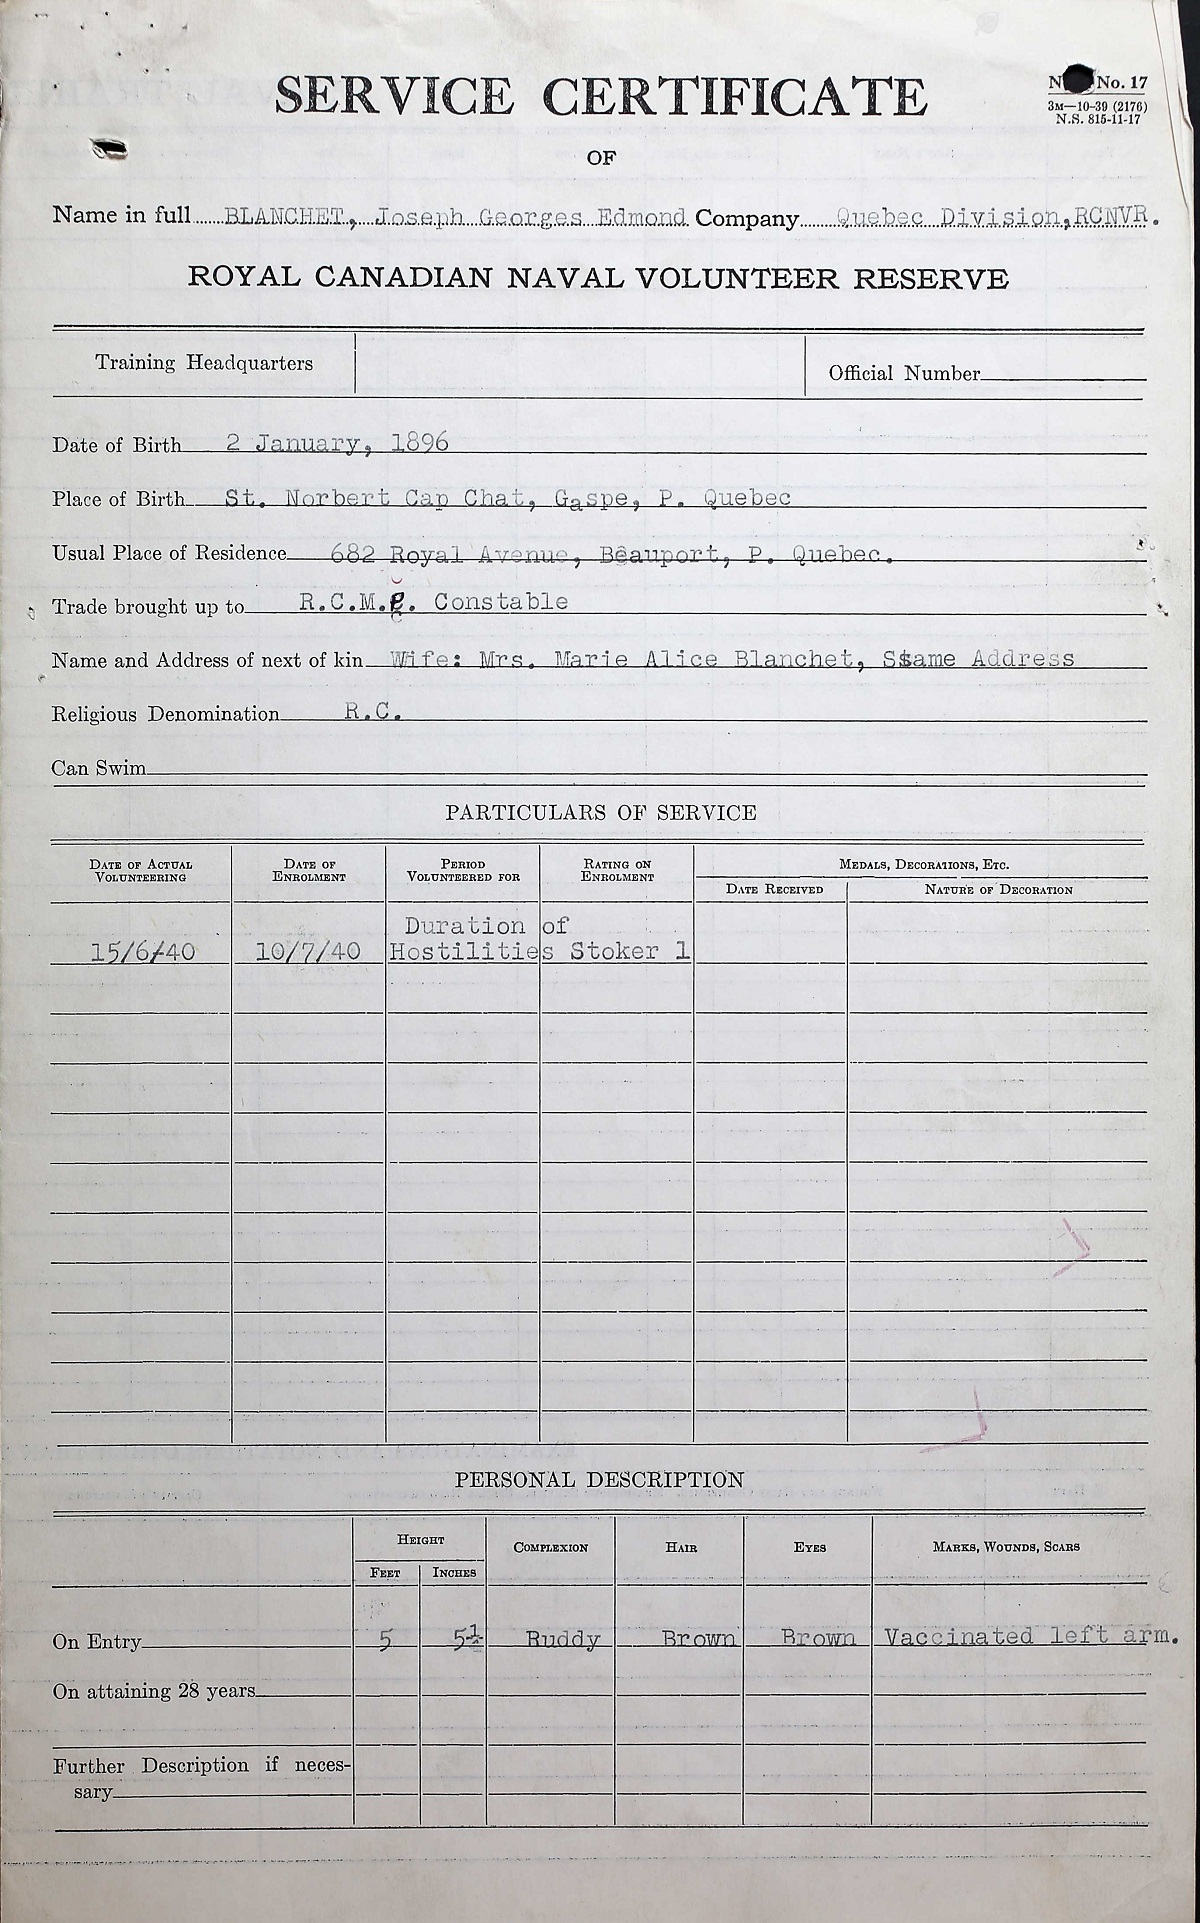 SERVICE CERTIFICATE
No. 17
3M—10-39 (2176)
N.S. 815-11-17
OF
Name in full BLANCHET, Joseph Georges Edmond Company Quebec Division, RCNVR.
ROYAL CANADIAN NAVAL VOLUNTEER RESERVE
Training Headquarters
Official Number
Date of Birth 2 January, 1896
Place of Birth St. Norbert Cap Chat, Gaspe, P. Quebec
Usual Place of Residence 682 Royal Avenue, Beauport, P. Quebec.
Trade brought up to R.C.M.P. Constable
Name and Address of next of kin Wife: Mrs. Marie Alice Blanchet, Same Address
Religious Denomination R.C.
Can Swim
PARTICULARS OF SERVICE
DATE OF ACTUAL VOLUNTEERING
DATE OF ENROLMENT
PERIOD VOLUNTEERED FOR
RATING ON ENROLMENT
MEDALS, DECORATIONS, ETC.
DATE RECEIVED
NATURE OF DECORATION
Duration of
15/6/40 10/7/40 Hostilities Stoker 1
PERSONAL DESCRIPTION
HEIGHT
FEET
INCHES
COMPLEXION
HAIR
EYES
MARKS, WOUNDS, SCARS
On Entry 5 5½ Ruddy Brown Brown Vaccinated left arm.
On attaining 28 years
Further Description if neces-
sary